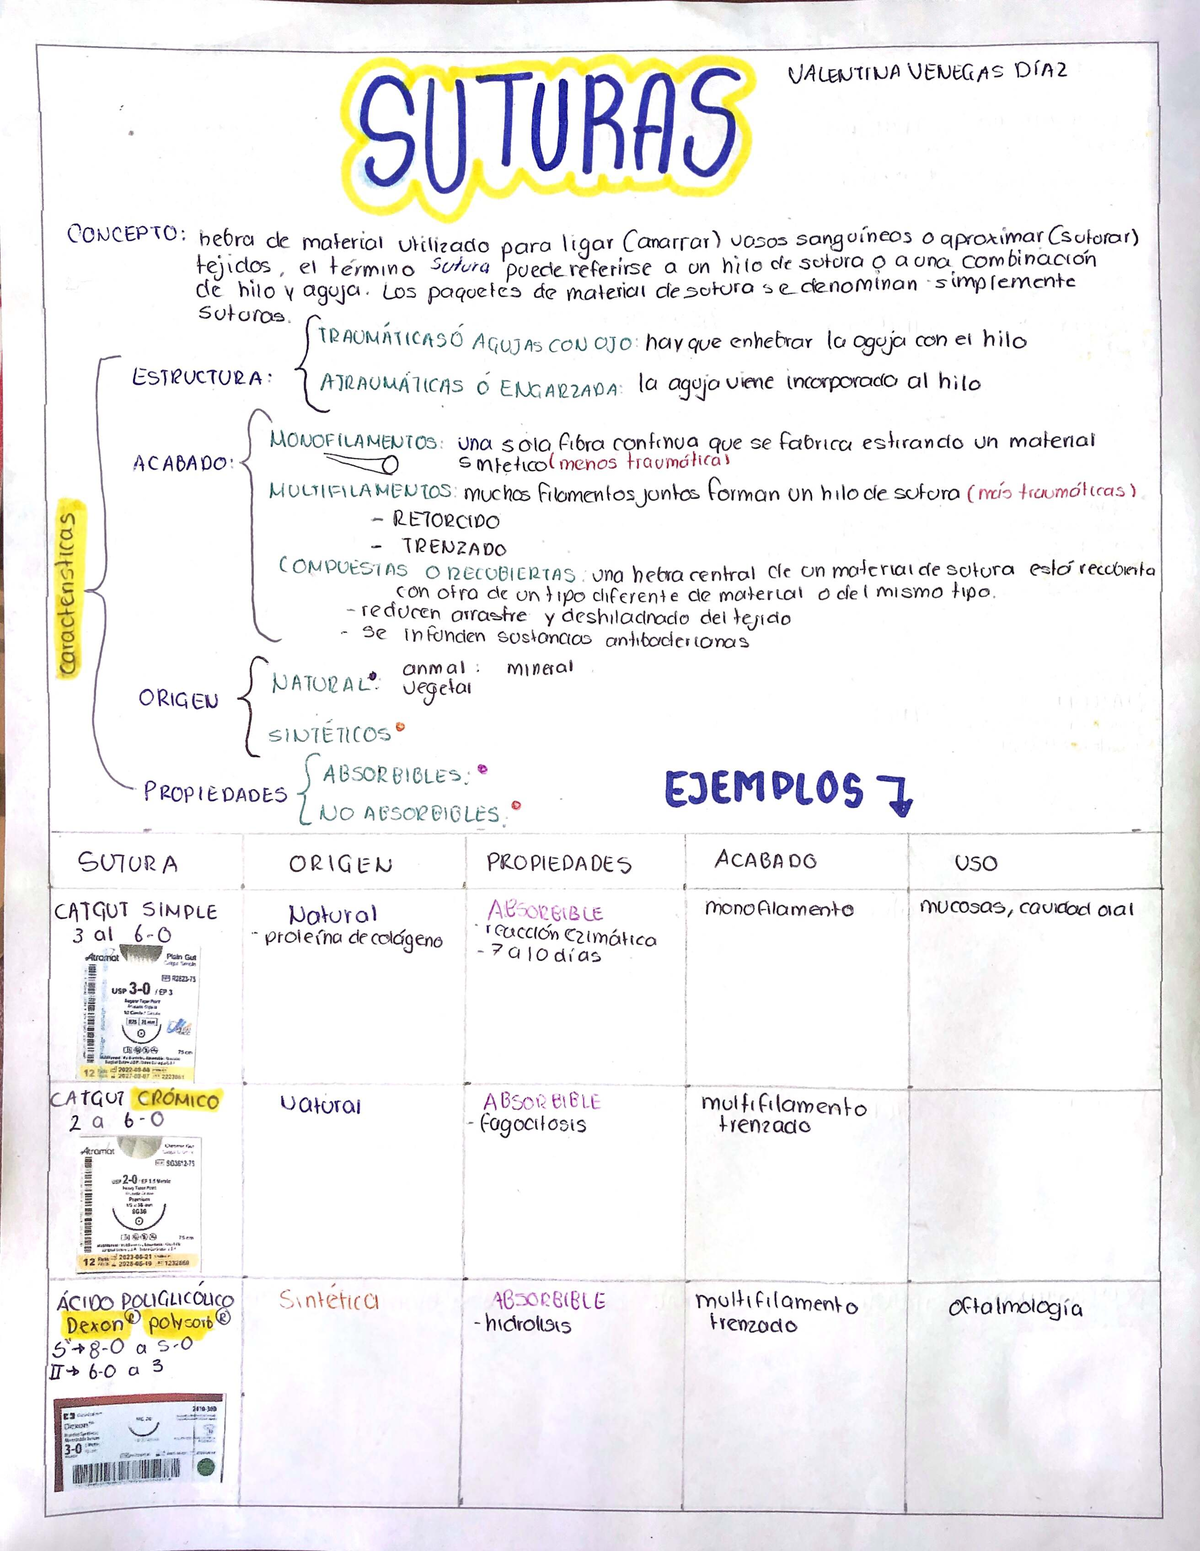 VALENTINA VENEGAS DÍAZ
SUTURAS
CONCEPTO: hebra de material utilizado para ligar (amarrar) vasos sanguíneos o aproximar (suturar)
tejidos, el término sutura puede referirse a un hilo de sutura o a una combinación
de hilo y aguja. Los paquetes de material de sutura se denominan simplemente
suturas.
Características
ESTRUCTURA:
TRAUMÁTICAS Ó AGUJAS CON OJO: hay que enhebrar la aguja con el hilo
ATRAUMÁTICAS Ó ENGARZADA: la aguja viene incorporado al hilo
ACABADO:
MONOFILAMENTOS: una sola fibra continua que se fabrica estirando un material
sintético (menos traumática)
MULTIFILAMENTOS: muchos filamentos juntos forman un hilo de sutura (más traumáticas)
- RETORCIDO
- TRENZADO
COMPUESTAS O RECUBIERTAS: una hebra central de un material de sutura está recubierta
con otra de un tipo diferente de material o del mismo tipo.
- reducen arrastre y deshilachado del tejido
- se infunden sustancias antibacterianas
ORIGEN
NATURAL: anmal: mineral
vegetal
SINTÉTICOS
PROPIEDADES
ABSORBIBLES:
NO ABSORBIBLES:
EJEMPLOS
SUTURA ORIGEN PROPIEDADES ACABADO USO
CATGUT SIMPLE
3 al 6-0
Natural
- proteína de colágeno
ABSORBIBLE
- reacción ezimática
- 7 a 10 días
monofilamento
mucosas, cavidad oral
Atramat Plain Gut
USP 3-0 / EP 3
75 cm
12
CATGUT CRÓMICO
2 a 6-0
Natural
ABSORBIBLE
- fagocitosis
multifilamento
trenzado
Atramat
2-0
75 cm
12
ÁCIDO POLIGLICÓLICO
Dexon® polysorb®
S→8-0 a 5-0
II→ 6-0 a 3
Sintética
ABSORBIBLE
- hidrolisis
multifilamento
trenzado
oftalmología
Dexon
3-0